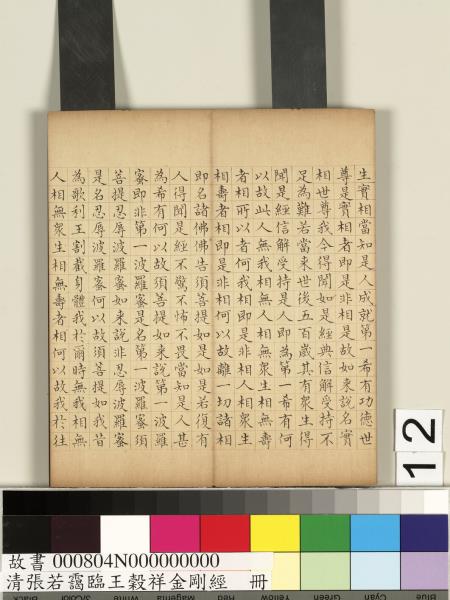 生實相當知是人成就第一希有功德世
尊是實相者即是非相是故如來說名實
相世尊我今得聞如是經典信解受持不
足為難若當來世後五百歲其有衆生得
聞是經信解受持是人即為第一希有何
以故此人無我相無人相無衆生相無壽
者相所以者何我相即是非相人相衆生
相壽者相即是非相何以故離一切諸相
即名諸佛佛告須菩提如是如是若復有
人得聞是經不驚不怖不畏當知是人甚
為希有何以故須菩提如來說第一波羅
蜜即非第一波羅蜜是名第一波羅蜜須
菩提忍辱波羅蜜如來說非忍辱波羅蜜
是名忍辱波羅蜜何以故須菩提如我昔
為歌利王割截身體我於爾時無我相無
人相無衆生相無壽者相何以故我於往
12
故書 000804N000000000
清張若靄臨王穀祥金剛經 冊
Black 3/Color White Magenta Red Yellow Green Cyan Blue